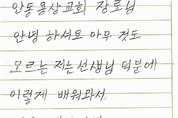 안동용상교회 장로님
안녕 하셔요 아무 것도
모르는 저는 선생님 덕분에
이렇게 배워와서